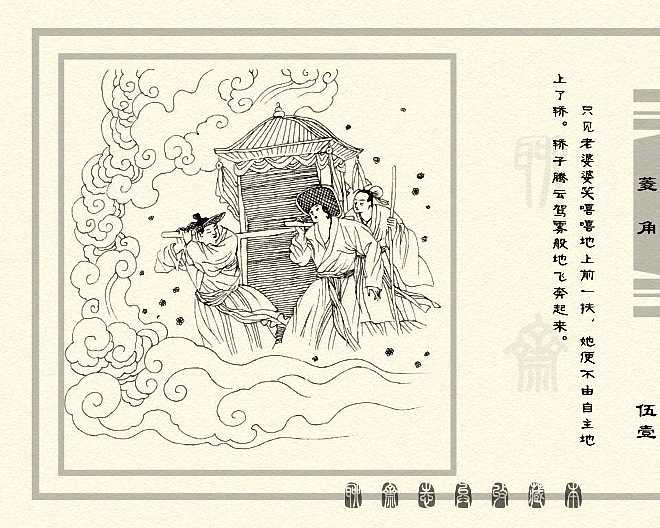 菱角
伍壹
只见老婆婆笑嘻嘻地上前一扶，她便不由自主地
上了轿。轿子腾云驾雾般地飞奔起来。
聊斋志异收藏本